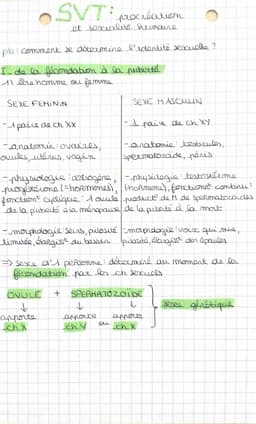 SVT: procréation
et sexualité humaine
pb: comment se détermine l'identité sexuelle ?
I. de la fécondation à la puberté
1) être homme ou femme
SEXE FEMININ
SEXE MASCULIN
- 1 paire de ch XX
- 1 paire de ch XY
- anatomie: ovaires,
ovules, utérus, vagin
- anatomie: testicules,
spermatozoïde, pénis
- physiologie: œstrogène,
progestérone (= hormones),
fonction^t cyclique: 1 ovule
de la puberté à la ménopause
- physiologie: testostérone
(hormone), fonction^t continu:
product° de M de spermatozoïdes
de la puberté à la mort
- morphologie: seins, pilosité
limitée, élargis^t du bassin
- morphologie: voix qui mue,
pilosité, élargis^t des épaules
=> sexe d'1 personne: déterminé au moment de la
fécondation par les ch sexuels
OVULE + SPERMATOZOÏDE
↓ ↓ ↓
apporte apporte apporte
ch X ch Y ou ch X
sexe génétique